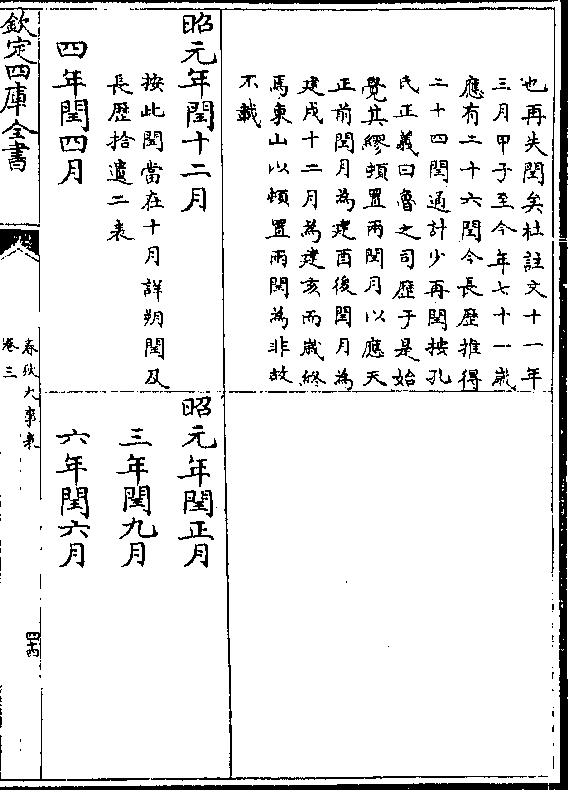 也再失閏矣杜註文十一年
三月甲子至今年七十一歲
應有二十六閏今長歷推得
二十四閏通計少再閏按孔
氏正義曰魯之司歷于是始
覺其繆頓置兩閏月以應天
正前閏月為建酉後閏月為
建戌十二月為建亥而歲終
焉東山以頓置兩閏為非故
不載
昭元年閏十二月
按此閏當在十月詳朔閏及
長歷拾遺二表
四年閏四月
昭元年閏正月
三年閏九月
六年閏六月
欽定四庫全書
春秋大事表
卷三